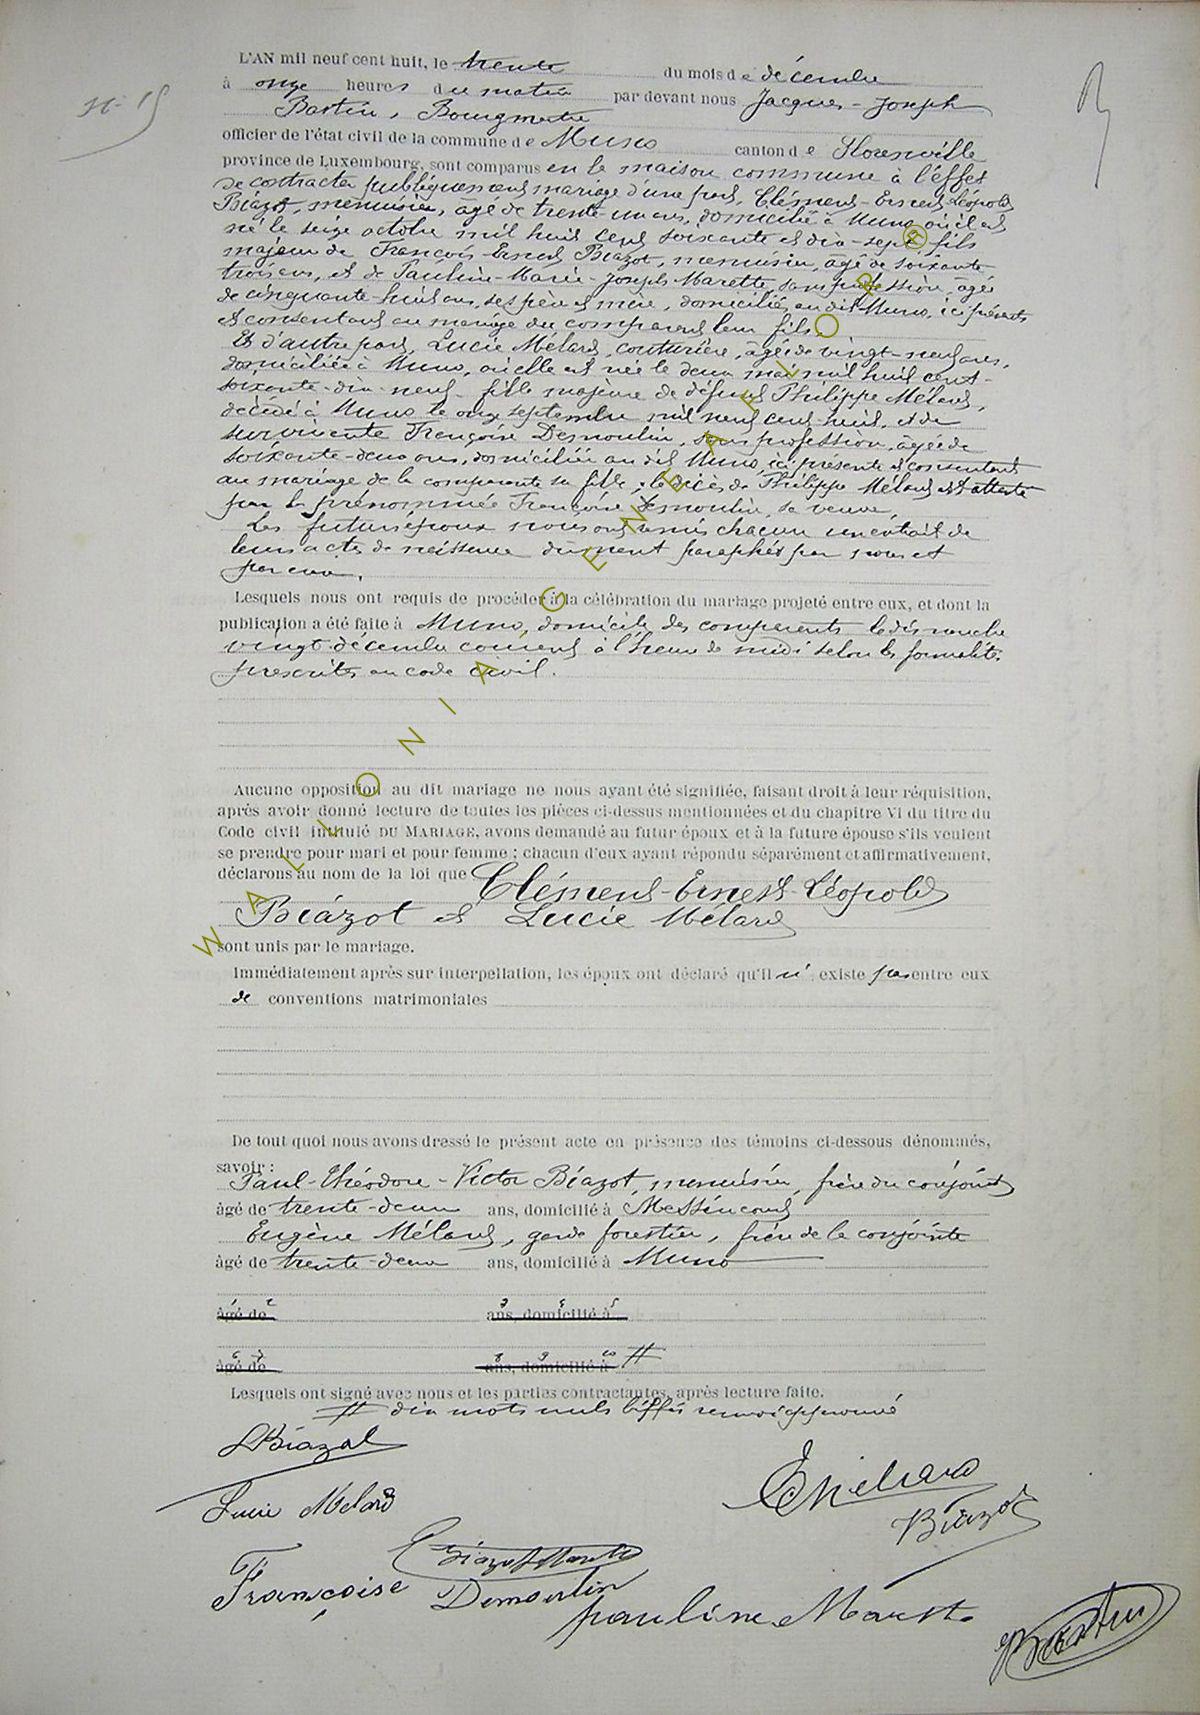 N° 15
L'AN mil neuf cent huit, le trente du mois de décembre
à onze heures du matin par devant nous Jacques-Joseph
Bastin, Bourgmestre
officier de l'état civil de la commune de Muno canton de Florenville
province de Luxembourg, sont comparus en la maison commune à l'effet
de contracter publiquement mariage d'une part, Clément-Ernest-Léopold
Biazot, menuisier, âgé de trente-un ans, domicilié à Muno, où il est
né le seize octobre mil huit cent soixante et dix-sept, fils
majeur de François-Ernest Biazot, menuisier, âgé de soixante-
trois ans, et de Pauline-Marie-Joseph Marette, sans profession, âgée
de cinquante-huit ans, ses père et mère, domiciliés au dit Muno, ici présents
et consentant au mariage du comparant leur fils.
Et d'autre part, Lucie Mélard, couturière, âgée de vingt-neuf ans,
domiciliée à Muno, où elle est née le deux mai mil huit cent
soixante-dix-neuf, fille majeure de défunt Philippe Mélard,
décédé à Muno le onze septembre mil neuf cent huit, et de
survivante Françoise Demoulin, sans profession, âgée de
soixante-deux ans, domiciliée au dit Muno, ici présente et consentant
au mariage de la comparante sa fille; le décès de Philippe Mélard est attesté
par la prénommée Françoise Demoulin, sa veuve.
Les futurs époux nous ont remis chacun un extrait de
leurs actes de naissance dûment paraphés par nous et
par eux.
Lesquels nous ont requis de procéder à la célébration du mariage projeté entre eux, et dont la
publication a été faite à Muno, domicile des comparants le dimanche
vingt décembre courant à l'heure de midi selon les formalités
prescrites au code civil.
Aucune opposition au dit mariage ne nous ayant été signifiée, faisant droit à leur réquisition,
après avoir donné lecture de toutes les pièces ci-dessus mentionnées et du chapitre VI du titre du
Code civil intitulé DU MARIAGE, avons demandé au futur époux et à la future épouse s'ils veulent
se prendre pour mari et pour femme; chacun d'eux ayant répondu séparément et affirmativement,
déclarons au nom de la loi que Clément-Ernest-Léopold
Biazot et Lucie Mélard
sont unis par le mariage.
Immédiatement après sur interpellation, les époux ont déclaré qu'il n'existe pas entre eux
de conventions matrimoniales
De tout quoi nous avons dressé le présent acte en présence des témoins ci-dessous dénommés,
savoir:
Paul-Théodore-Victor Biazot, menuisier, frère du conjoint
âgé de trente-deux ans, domicilié à Messincourt
Eugène Mélard, garde forestier, frère de la conjointe
âgé de trente-deux ans, domicilié à Muno
âgé de ans, domicilié à
âgé de ans, domicilié à #
Lesquels ont signé avec nous et les parties contractantes, après lecture faite.
# dix mots nuls biffés renvoi approuvé
Biazot
Lucie Mélard
E Mélard
Biazot
Biazot Marette
Françoise Demoulin
Pauline Marette
Bastin
WALLONIA, GENEAFLOR®